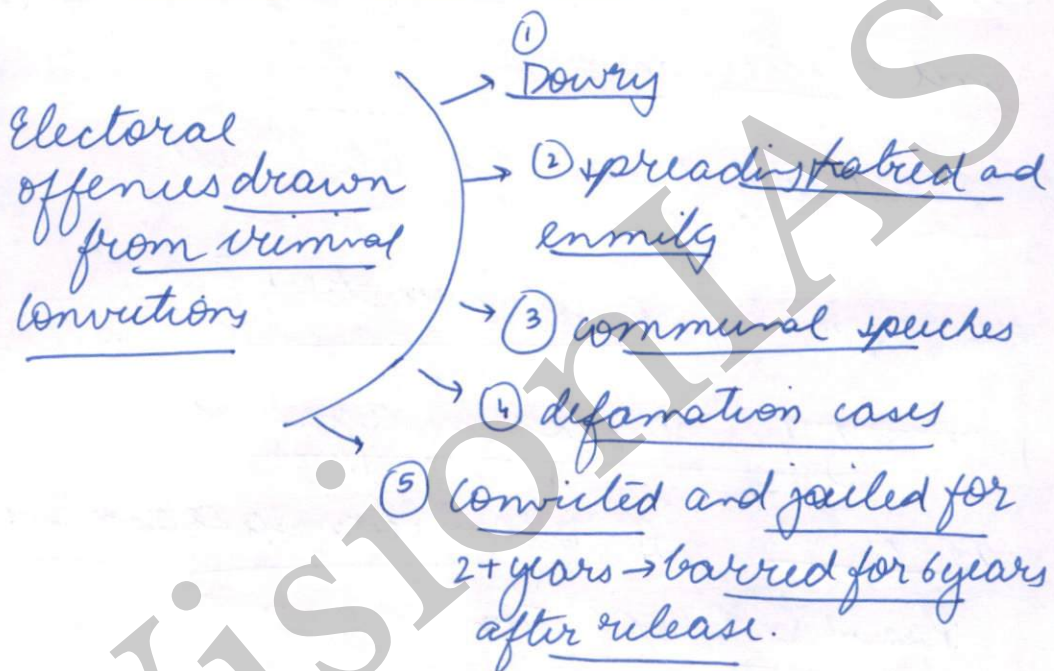 Electoral
offences drawn
from criminal
convictions
① Dowry
② spreading hatred and
enmity
③ communal speeches
④ defamation cases
⑤ convicted and jailed for
2+ years → barred for 6 years
after release.
VisionIAS